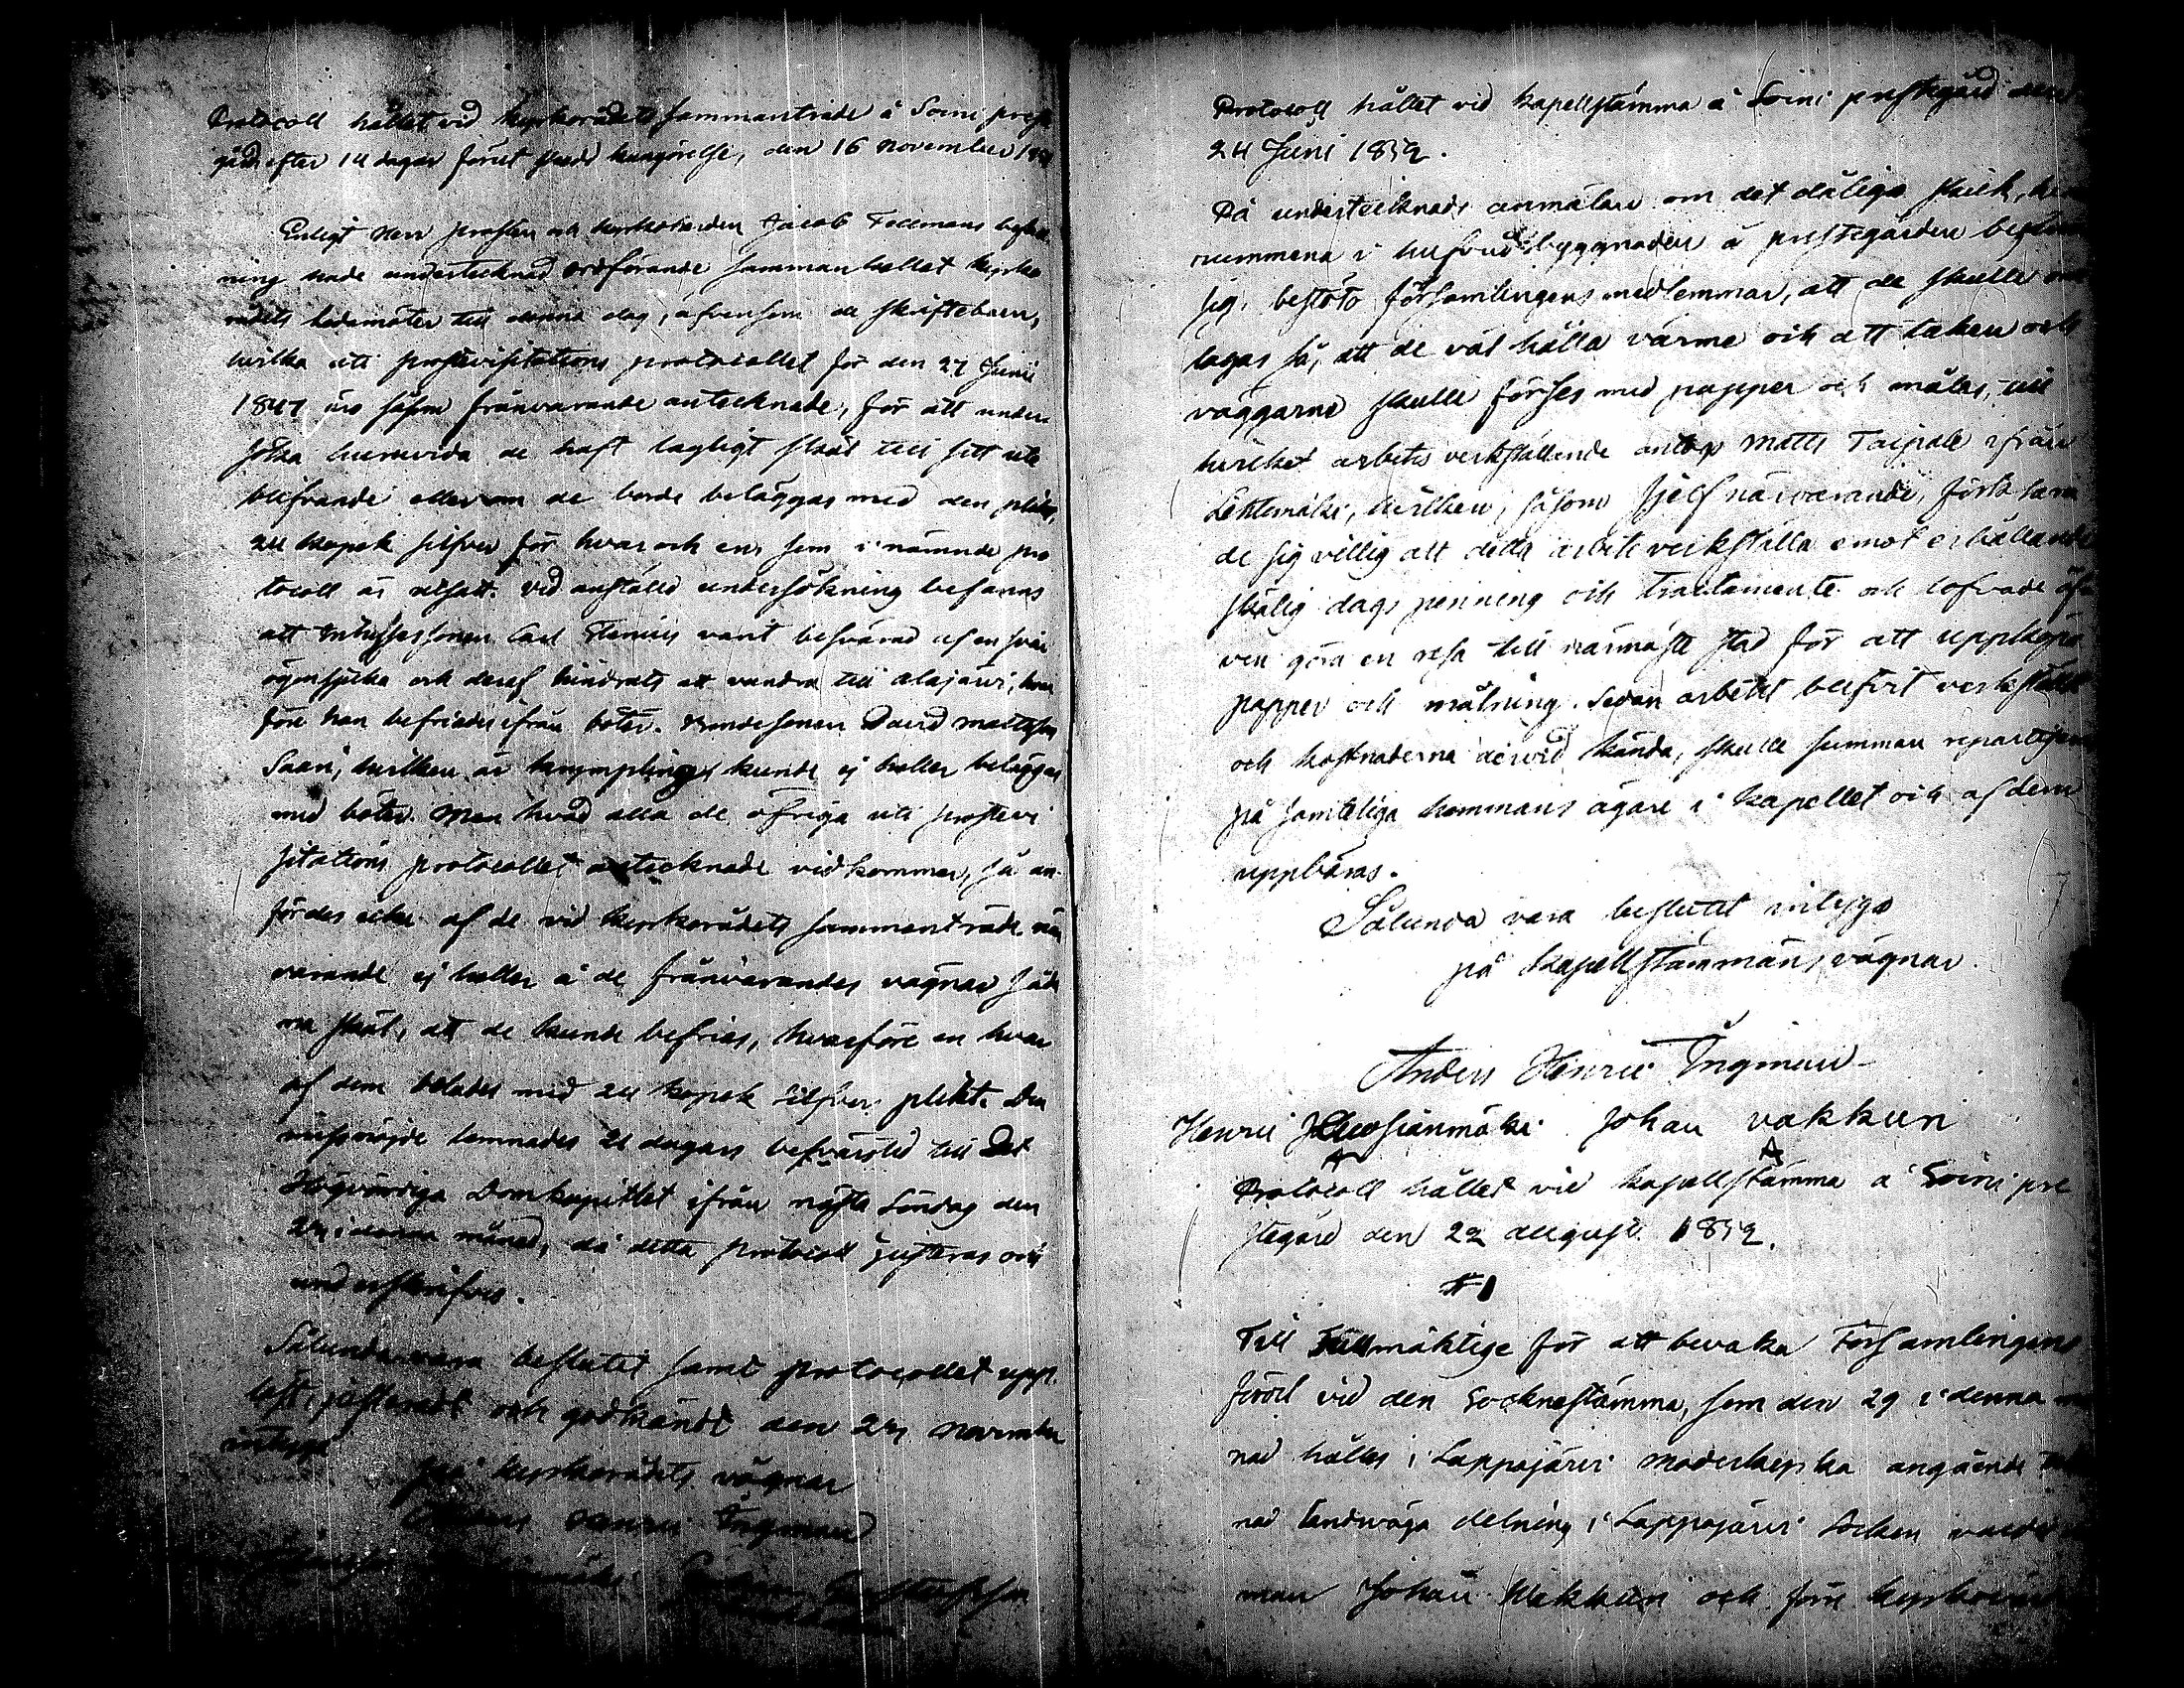 Protocoll hållet vid kyrkorådets sammanträde å Soini prest
gård efter 14 dagar förut skedd kungörelse, den 16 november
Enligt Herr Prosten och kyrkoherden Jacob Fellmans
ning hade undertecknad ordförande sammankallat kyrko
rådets ledamöter till denna dag, äfvensom de skriftebarn,
hvilka uti prostevisitations protocollet för den 27 Junii
1847 äro såsom frånvarande antecknade, för att under
söka huruvida de haft lagligt skäl till sitt ute
blifvande eller om de borde beläggas med den plikt,
24 kopek silfver för hvar och en, som i nämnde pro
tocoll är utsatt. Vid anställd undersökning befanns
att Carl varit besvärad af en svår
ögonsjuka och deraf hindrats att vandra till Alajärvi, hvar
före han befriades ifrån böter. Bondesonen David Mattsson
Saari, hvilken är krympling, kunde ej heller beläggas
med böter. Men hvad alla de öfriga uti prostevi
sitations protocollet antecknade vidkommer, så an
fördes icke af de vid kyrkorådets sammanträde när
varande ej heller å de frånvarandes vägnar såda
na skäl, att de kunde befrias, hvarföre en hvar
af dem belades med 24 kopek silfver plikt. Den
missnöjde lemnades 21 dagars besvärstid till Det
Högvördiga Domkapitlet ifrån nästa Söndag den
24 i denna månad, då detta protocoll justeras och
underskrifves.
Sålunda vara beslutet samt protocollet upp
läst, justeradt och godkändt den 24 november
intyga
på kyrkorådets vägnar
Anders Henric Ingman
Protocoll hållet vid kapellstämma å Soini prestgård den
24 Juni 1852.
På undertecknads anmälan om det dåliga skick,
rummena i hufvudbyggnaden å prestegården
sig, beslöto församlingens medlemmar, att de skulle om
lagas så, att de väl hålla värme och att taken och
väggarne skulle förses med papper och målas, till
hvilket arbetes verkställande antogs Matts Taipale ifrån
Lehtimäki, hvilken, såsom sjelf närvarande, förklara
de sig villig att detta arbete verkställa emot erhållande
skälig dagspenning och tractamente och lofvade äf
ven göra en resa till närmaste stad för att uppköpa
papper och målning. Sedan arbetet blifvit verkställdt
och kostnaderna dervid kända, skulle summan repartiseras
på samteliga hemmans ägare i kapellet och af dem
uppbäras.
Sålunda vara beslutet intyga
på kapellstämmans vägnar
Anders Henric Ingman
Henric Johan Vakkuri
Protocoll hållet vid kapellstämma å Soini pre
stegård den 22 august. 1852.
§ 1
Till Fullmäktige för att bevaka Församlingens
fördel vid den Socknestämma, som den 29 i denna må
nad hålles i Lappajärvi moderkyrka angående
nad landsväga delning i Lappajärvi Socken valdes
man Johan Wakkuri och förre kyrkovärd